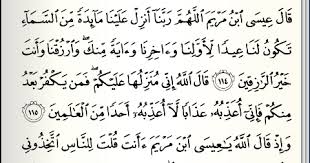 قَالَ عِيسَى ٱبْنُ مَرْيَمَ ٱللَّهُمَّ رَبَّنَآ أَنزِلْ عَلَيْنَا مَآئِدَةً مِّنَ ٱلسَّمَآءِ
تَكُونُ لَنَا عِيدًا لِّأَوَّلِنَا وَءَاخِرِنَا وَءَايَةً مِّنكَ وَٱرْزُقْنَا وَأَنتَ
خَيْرُ ٱلرَّٰزِقِينَ ١١٤ قَالَ ٱللَّهُ إِنِّى مُنَزِّلُهَا عَلَيْكُمْ فَمَن يَكْفُرْ بَعْدُ
مِنكُمْ فَإِنِّىٓ أُعَذِّبُهُۥ عَذَابًا لَّآ أُعَذِّبُهُۥٓ أَحَدًا مِّنَ ٱلْعَٰلَمِينَ ١١٥
وَإِذْ قَالَ ٱللَّهُ يَٰعِيسَى ٱبْنَ مَرْيَمَ ءَأَنتَ قُلْتَ لِلنَّاسِ ٱتَّخِذُونِى